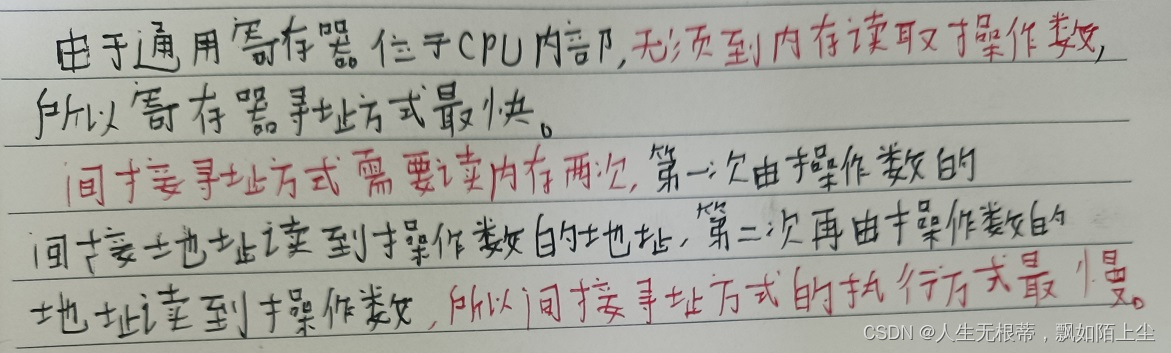 由于通用寄存器位于CPU内部,无须到内存读取操作数,
所以寄存器寻址方式最快。
间接寻址方式需要读内存两次,第一次由操作数的
间接地址读到操作数的地址,第二次再由操作数的
地址读到操作数,所以间接寻址方式的执行方式最慢。
CSDN @人生无根蒂，飘如陌上尘